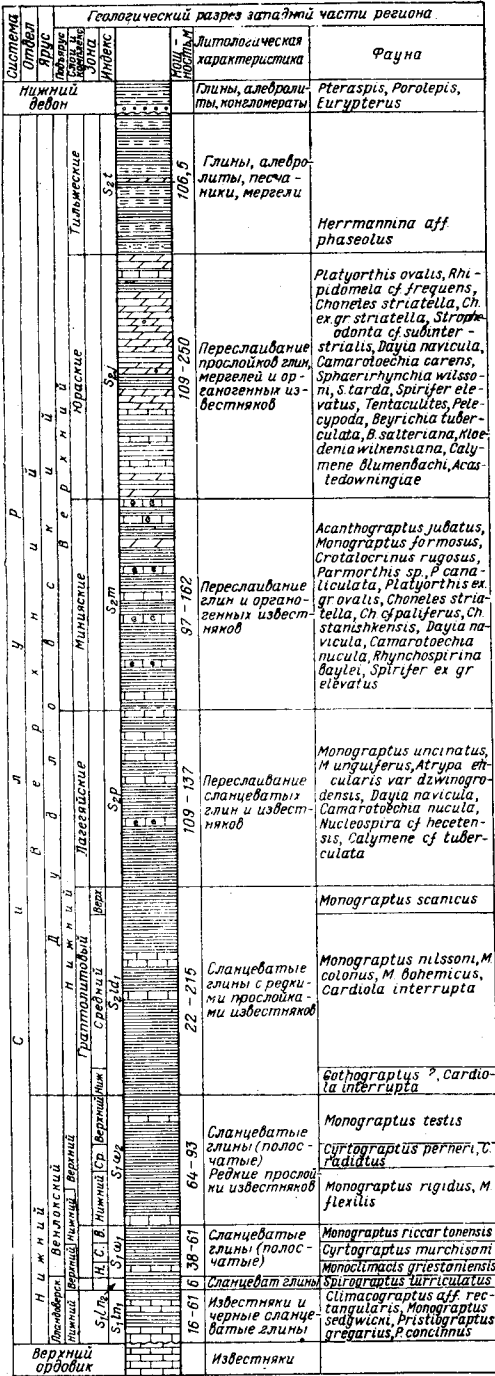 Геологический разрез западной части региона
Система
Отдел
Ярус
Подъярус
Зона
Индекс
Мощностьм
Литологическая
характеристика
Фауна
Нижний
девон
Глины, алевроли-
ты, конгломераты
Pteraspis, Porolepis,
Eurypterus
Силурийский
Верхний
Лудловский
Верхний
Тильжеские
S₂t
106,5
Глины, алевро-
литы, песча-
ники, мергели
Herrmannina aff
phaseolus
Юраские
S₂j
109-250
Переслаивание
прослойков глин,
мергелей и ор-
ганогенных из-
вестняков
Platyorthis ovalis, Rhi-
pidomela cf frequens,
Choneles striatella, Ch.
ex.gr striatella, Stroph-
odonta cf subinter-
strialis, Dayia navicula,
Camarotoechia carens,
Sphaerirhynchia wilsso-
ni, S. tarda, Spirifer ele-
vatus, Tentaculites, Pele-
cypoda, Beyrichia tuber-
culata, B. salteriana, Kloe-
denia wilkensiana, Caly-
mene Blumenbachi, Acas-
tedowningiae
Минияские
S₂m
97-162
Переслаивание
глин и органо-
генных извест-
няков
Acanthograptus jubatus,
Monograptus formosus,
Crotalocrinus rugosus,
Parmorthis sp., P cana-
liculata, Platyorthis ex.
gr ovalis, Choneles stria-
tella, Ch cf paliferus, Ch.
stanishkensis, Dayia na-
vicula, Camarotoechia
nucula, Rhynchospirina
Baylei, Spirifer ex gr
elevatus
Пагегяйские
S₂p
109-137
Переслаивание
сланцеватых
глин и извест-
няков
Monograptus uncinatus,
M unguiferus, Atrypa
cularis var dzwinogro-
densis, Dayia navicula,
Camarotoechia nucula,
Nucleospira cf heceten-
sis, Calymene cf tuber-
culata
Нижний
Граптолитовый
Верх
Средний
Ниж
S₂ld₁
22-215
Сланцеватые
глины с редки-
ми прослойка-
ми известняков
Monograptus scanicus
Monograptus nilssoni, M.
colonus, M. bohemicus,
Cardiola interrupta
Gothograptus ?, Cardio-
la interrupta
Нижний
Венлокский
Верхний
Верхний
Ср.
Нижний
S₁w₂
64-93
Сланцеватые
глины (полос-
чатые)
Редкие прослой-
ки известняков
Monograptus testis
Cyrtograptus perneri, C.
radiatus
Monograptus rigidus, M
flexilis
Нижний
В.
С.
Н.
S₁w₁
38-61
Сланцеватые
глины (полос-
чатые)
Monograptus riccartonensis
Cyrtograptus murchisoni
Monoclimacis griestoniensis
Лландоверск
Верхний
S₁ln₂
6
Сланцеват глины
Spirograptus turriculatus
Нижний
S₁ln₁
16-61
Известняки и
черные сланце-
ватые глины
Climacograptus aff. rec-
tangularis, Monograptus
sedgwicki, Pristiograptus
gregarius, P. concinnus
Верхний
ордовик
Известняки